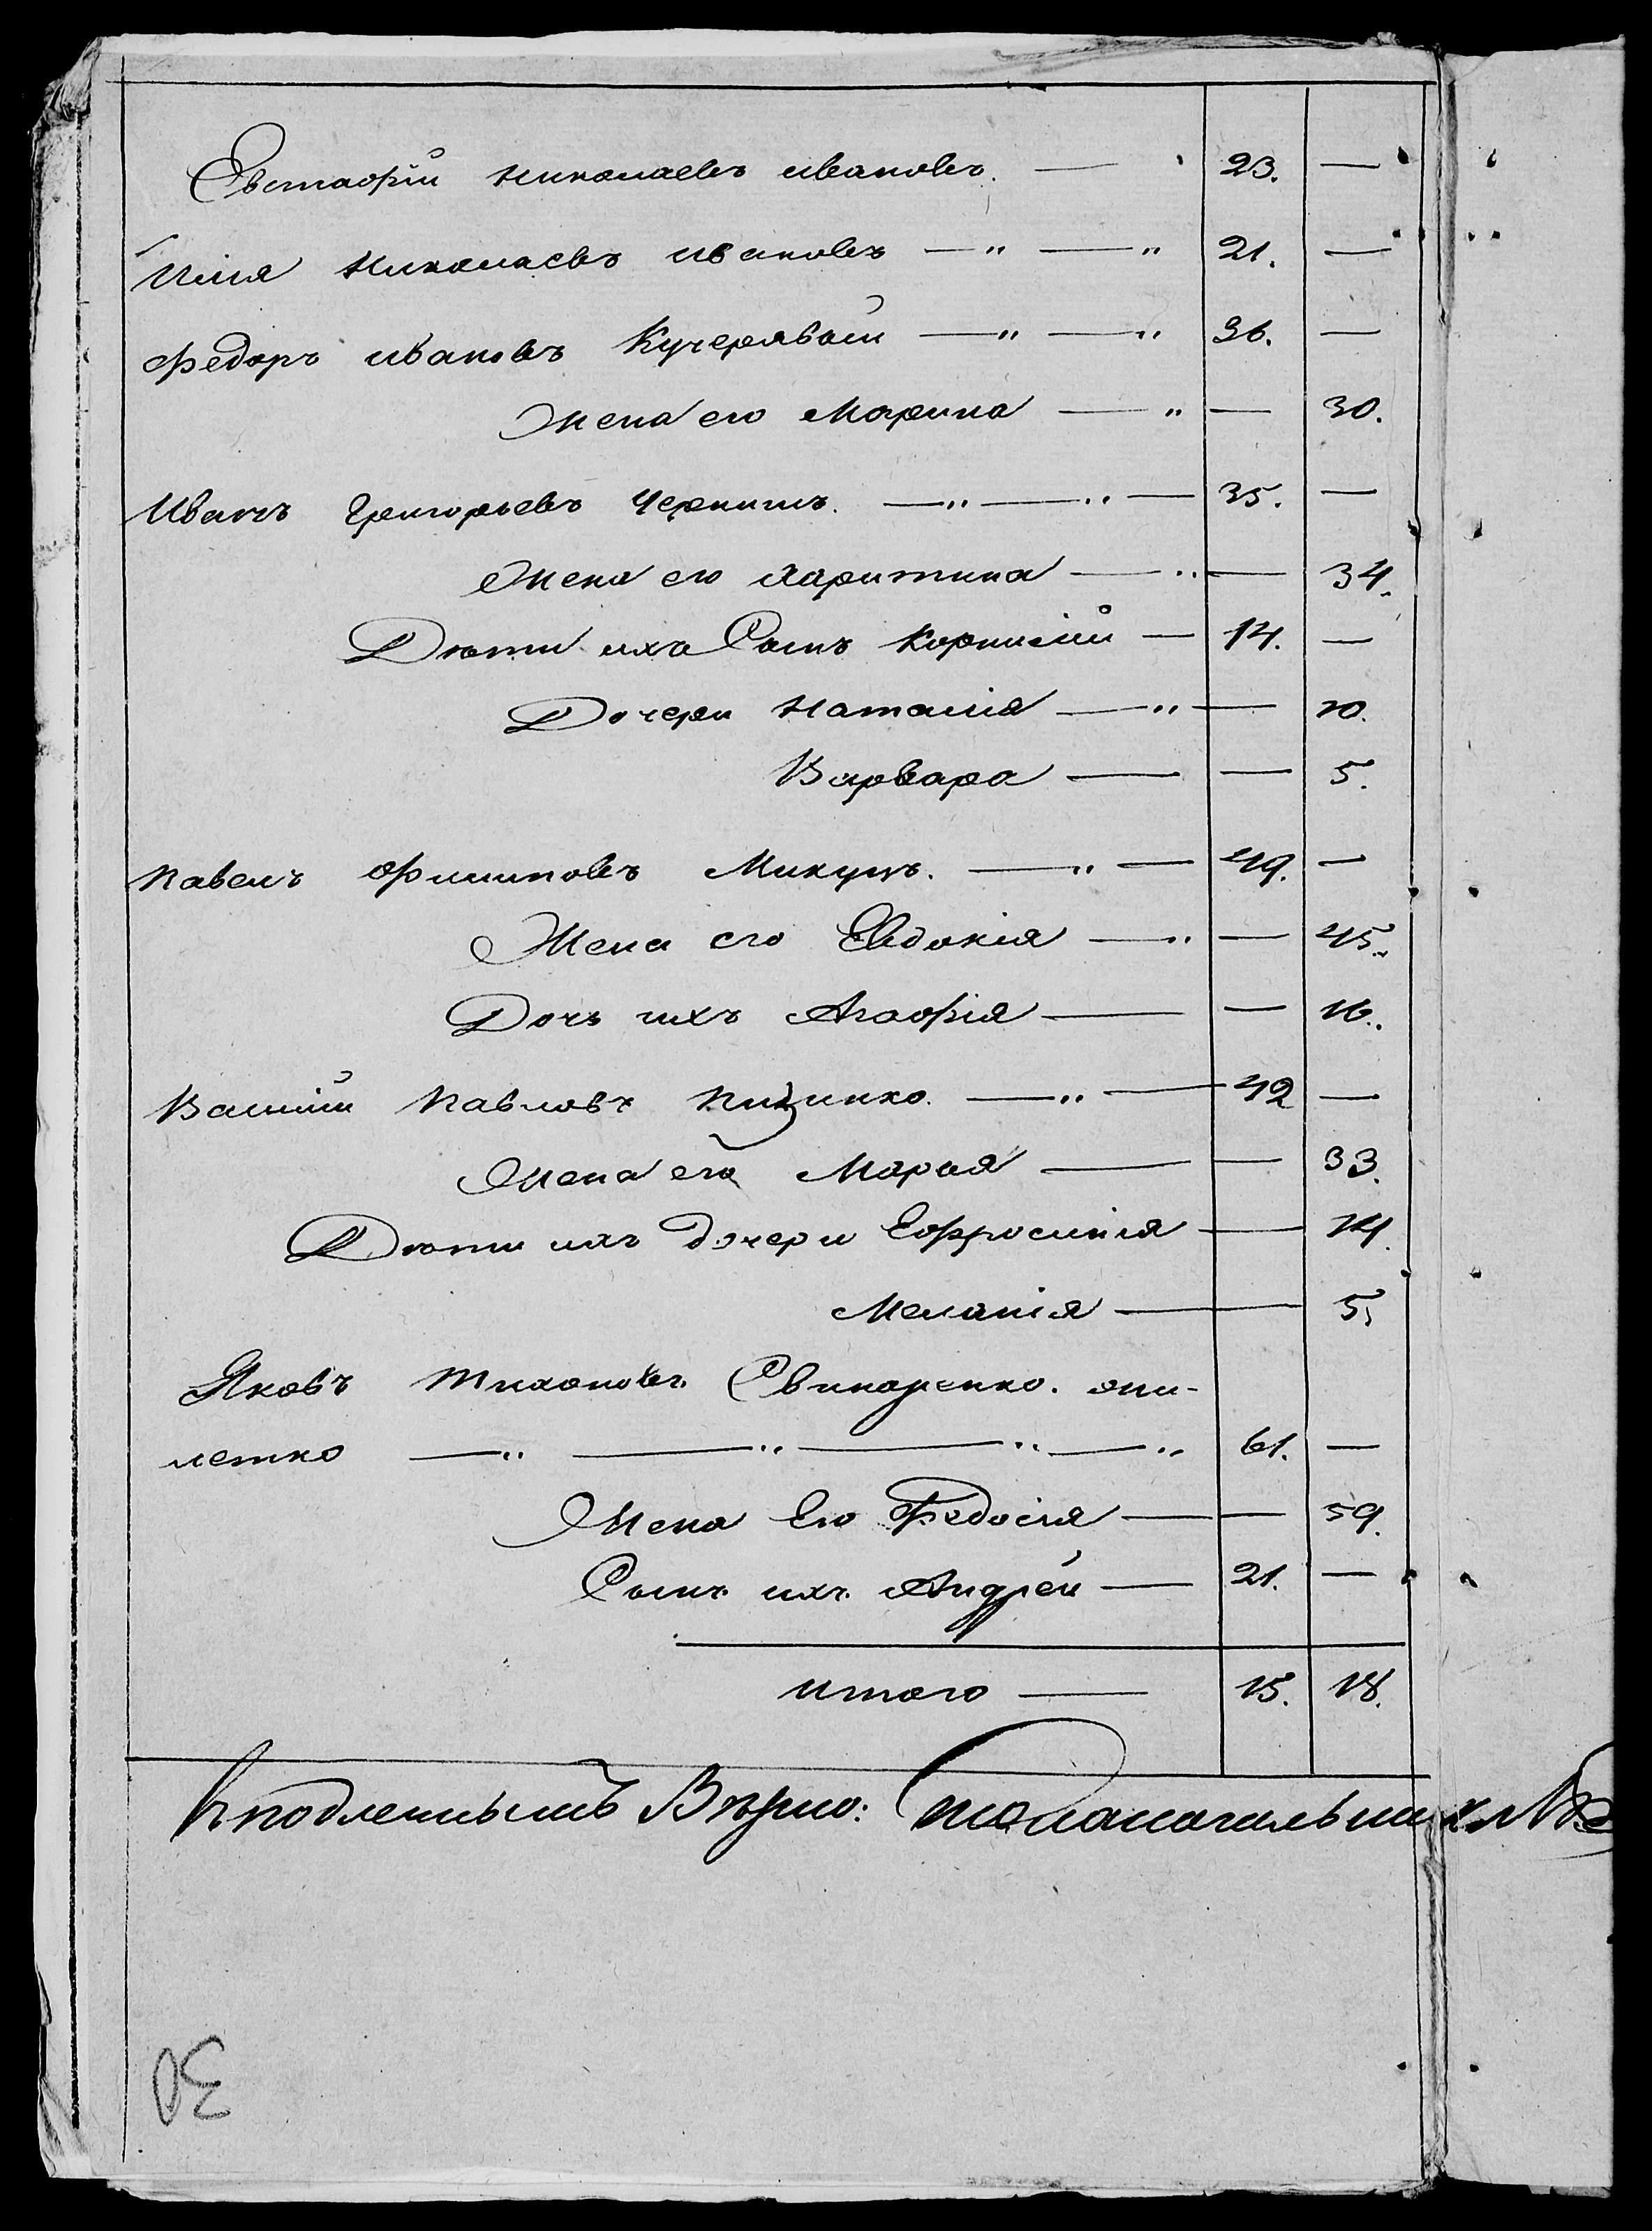 Евстафій Николаевъ Ивановъ. — 23. —
Илія Николаевъ Ивановъ —„ —„ 21. —
Федоръ Ивановъ Кучерявый —„ —„ 36. —
Жена его Марина —„ — 30.
Иванъ Григорьевъ Чернышъ. —„ —„ — 35. —
Жена его Харитина —„ — 34.
Дѣти ихъ Сынъ Корнилій — 14. —
Дочери Наталія —„ — 10.
Варвара — — 5.
Павелъ Филиповъ Микуцъ. —„ — 49. —
Жена его Евдокія —„ — 45.
Дочь ихъ Агафія — — 16.
Василій Павловъ —„ — 42 —
Жена его Марія — — 33.
Дѣти ихъ дочери Ефросинія — 14.
Меланія — 5.
Яковъ Тихоновъ Свинаренко. опи-
летко —„ —„ —„ —„ 61. —
Жена Его Федосія — — 59.
Сынъ ихъ Андрей — 21. —
Итого — 15. 18.
Съ подленнымъ Вѣрно: Столоначальникъ
30